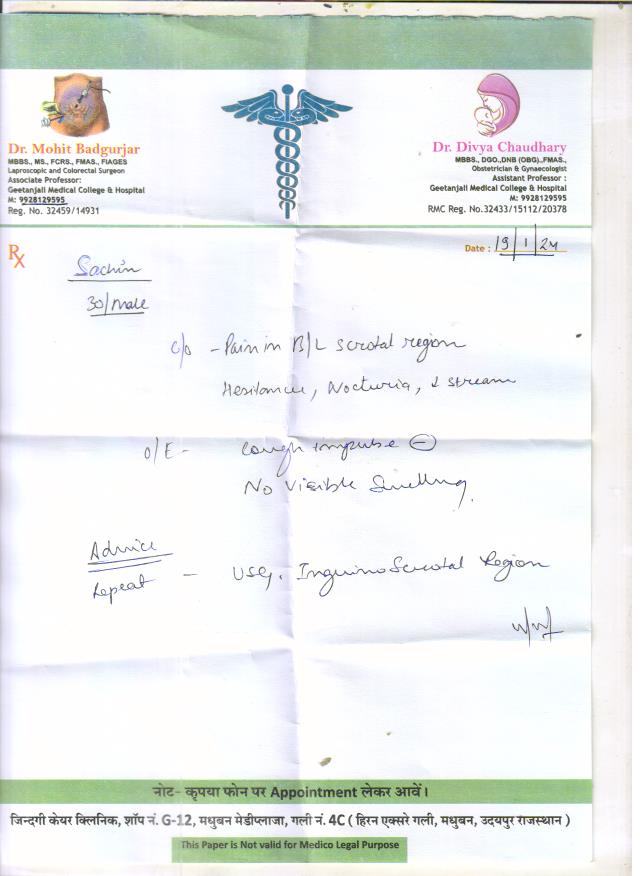 Dr. Mohit Badgurjar
MBBS., MS., FCRS., FMAS., FIAGES
Laproscopic and Colorectal Surgeon
Associate Professor:
Geetanjali Medical College & Hospital
M: 9928129595
Reg. No. 32459/14931
Dr. Divya Chaudhary
MBBS., DGO.,DNB (OBG).,FMAS.,
Obstetrician & Gynaecologist
Assistant Professor :
Geetanjali Medical College & Hospital
M: 9928129595
RMC Reg. No.32433/15112/20378
Rx
Date : 19/1/24
Sachin
30/male
c/o - Pain in B/L scrotal region
Hesitancy, Nocturia, ↓ stream
O/E - Cough impulse ⊖
No Visible Swelling.
Advice
Repeat - USG. Inguino Scrotal Region
नोट- कृपया फोन पर Appointment लेकर आवें।
जिन्दगी केयर क्लिनिक, शॉप नं. G-12, मधुबन मेडीप्लाजा, गली नं. 4C ( हिरन एक्सरे गली, मधुबन, उदयपुर राजस्थान )
This Paper is Not valid for Medico Legal Purpose